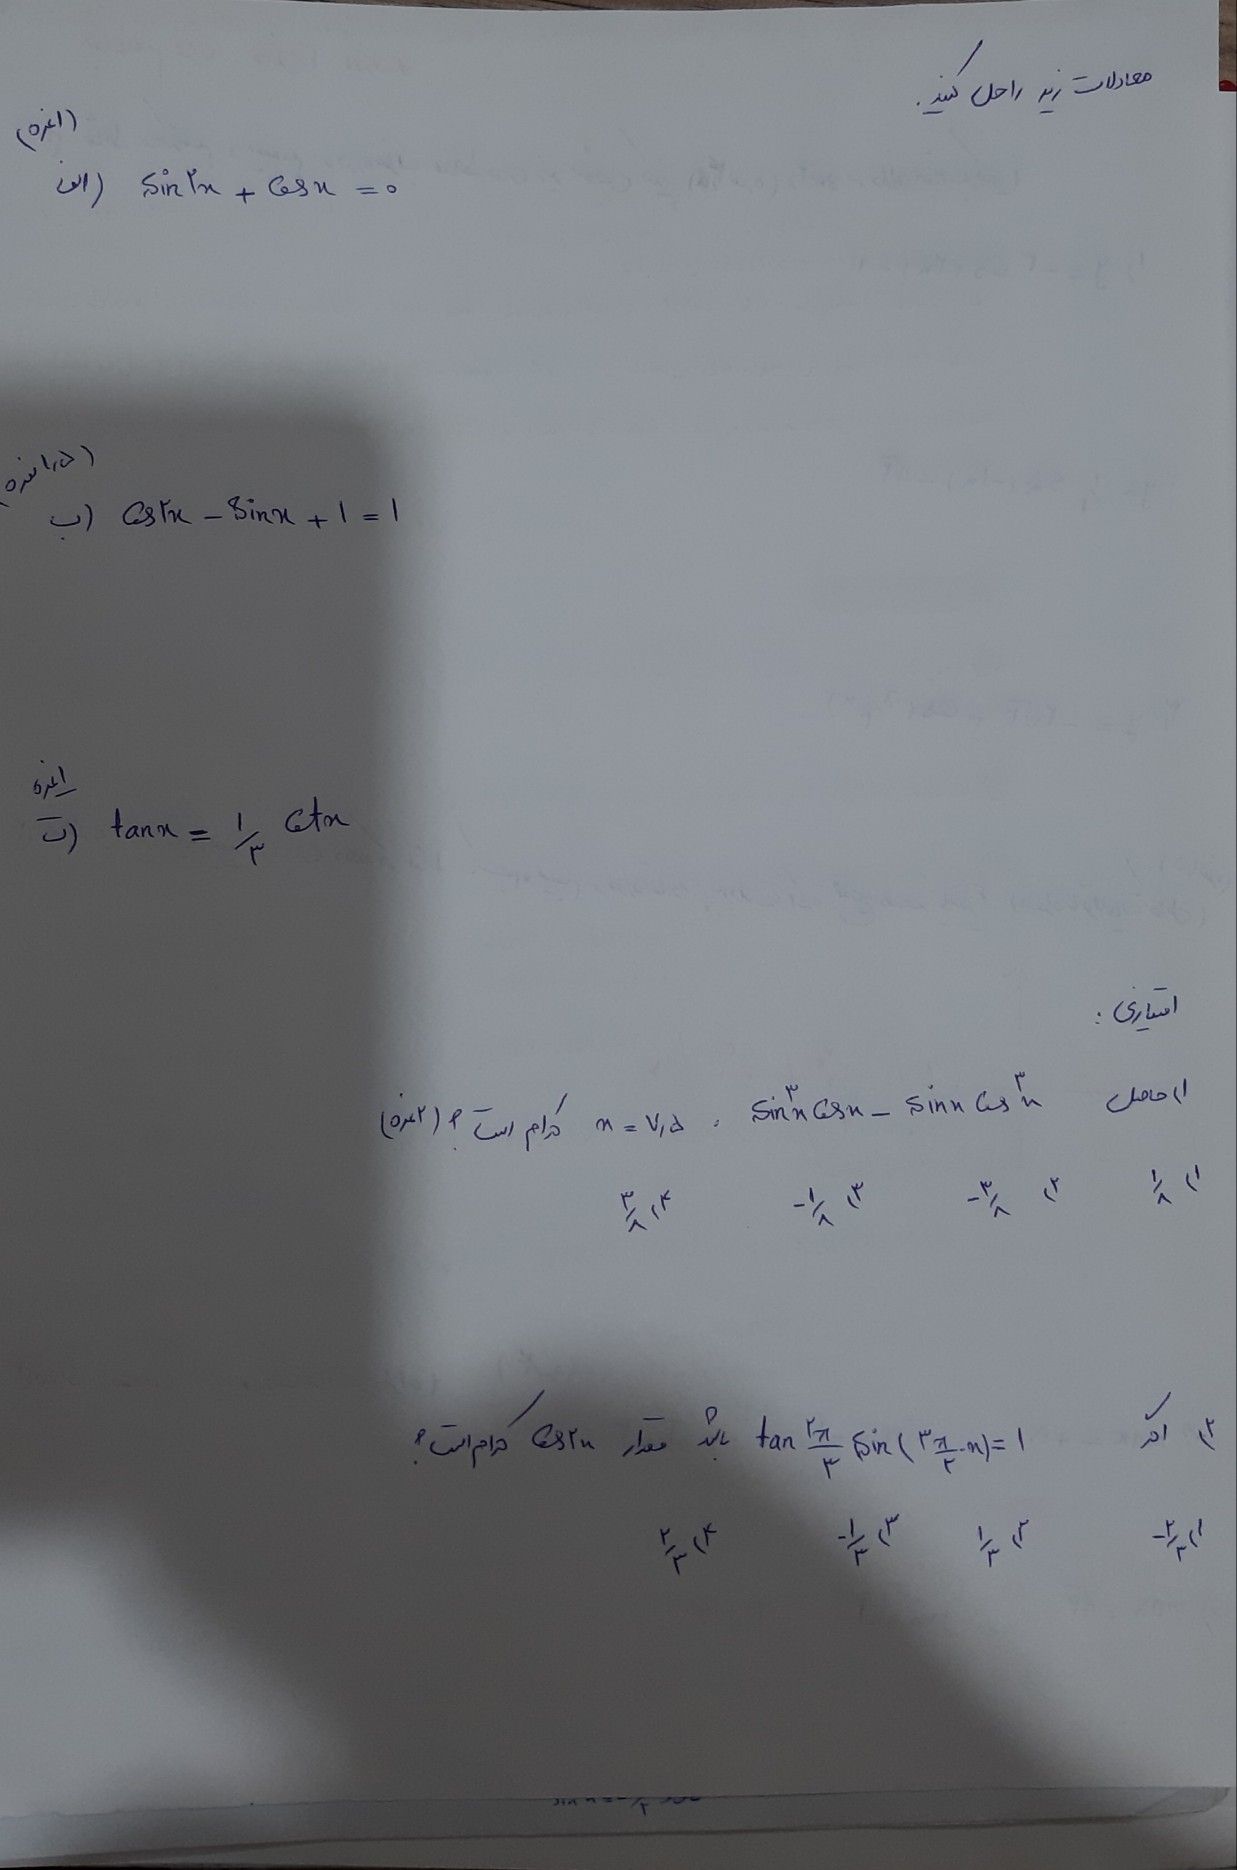 معادلات زیر را حل کنید.
(۱نمره)
الف) sin۲x + Cosx = ۰
(۱٫۵نمره)
ب) Cos۲x - Sinx + ۱ = ۱
۱نمره
ت) tanx = ۱/۳ Cotx
امتیازی :
۱) حاصل sin³x Cosx - sinx Cos³x ، x = ۷٫۵ کدام است؟ (۲نمره)
۱) ۱/۸ ۲) -۳/۸ ۳) -۱/۸ ۴) ۳/۸
۲) اگر tan ۲π/۳ Sin(۳π/۲ - x) = ۱ باشد مقدار Cos۲x کدام است؟
۱) -۲/۳ ۲) ۱/۳ ۳) -۱/۳ ۴) ۲/۳